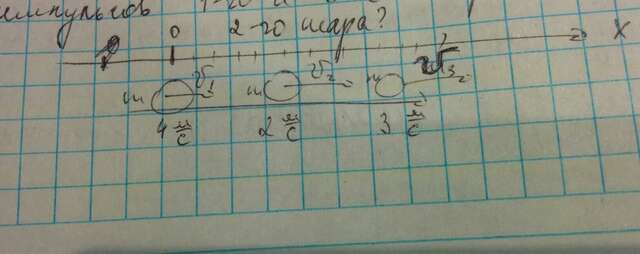 импульсов 1-го и
2-го шара?
0
X
m V₁ m V₂ m V₃
4 м/с 2 м/с 3 м/с